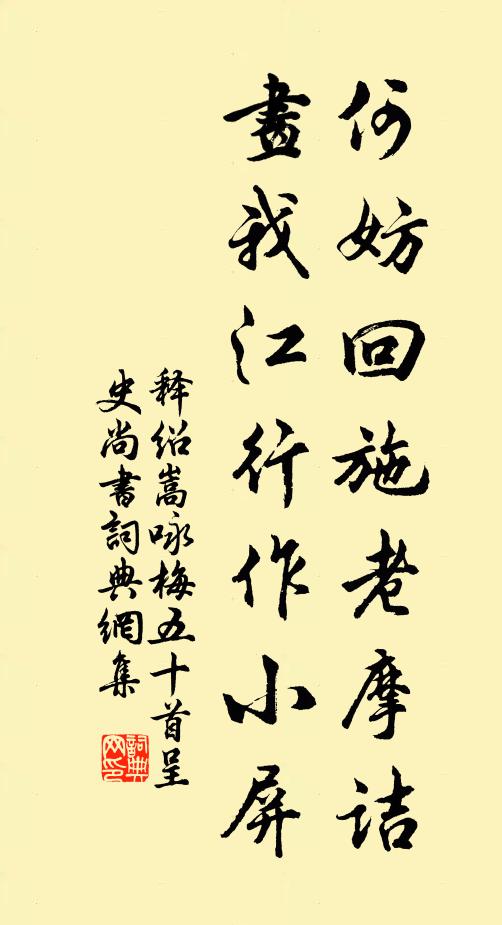 何妨回施老摩詰
畫我江行作小屏
释绍嵩咏梅五十首呈
史尚書詞典網集
詞典网印